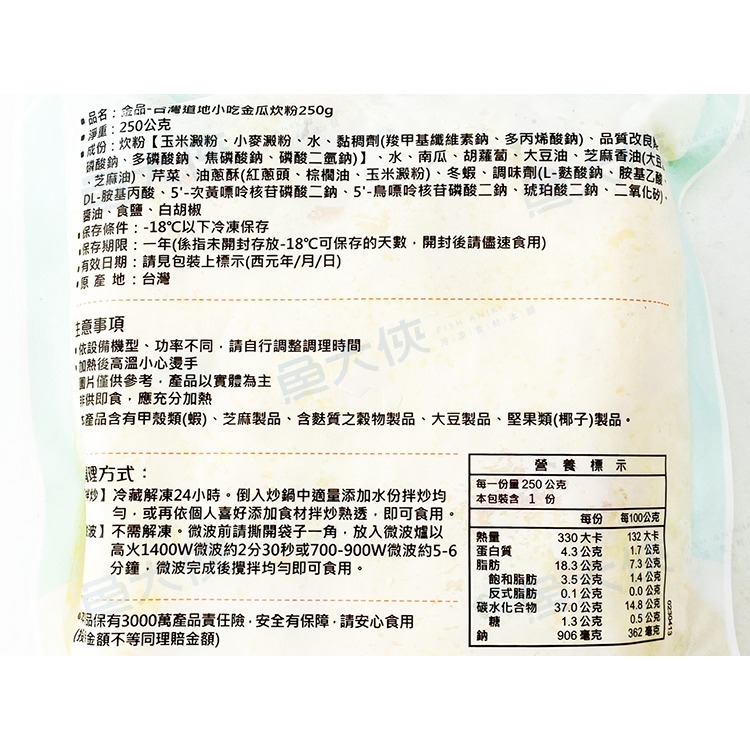 品名：金品-台灣道地小吃金瓜炊粉250g
淨重：250公克
成份：炊粉【玉米澱粉、小麥澱粉、水、黏稠劑(羧甲基纖維素鈉、多丙烯酸鈉)、品質改良
磷酸鈉、多磷酸鈉、焦磷酸鈉、磷酸二氫鈉)】、水、南瓜、胡蘿蔔、大豆油、芝麻香油(大豆
、芝麻油)、芹菜、油蔥酥(紅蔥頭、棕櫚油、玉米澱粉)、冬蝦、調味劑(L-麩酸鈉、胺基乙酸、
DL-胺基丙酸、5'-次黃嘌呤核苷磷酸二鈉、5'-鳥嘌呤核苷磷酸二鈉、琥珀酸二鈉、二氧化矽)、
醬油、食鹽、白胡椒
保存條件：-18℃以下冷凍保存
保存期限：一年(係指未開封存放-18℃可保存的天數，開封後請儘速食用)
有效日期：請見包裝上標示(西元年/月/日)
原產地：台灣
注意事項
依設備機型、功率不同，請自行調整調理時間
加熱後高溫小心燙手
圖片僅供參考，產品以實體為主
非供即食，應充分加熱
本產品含有甲殼類(蝦)、芝麻製品、含麩質之穀物製品、大豆製品、堅果類(椰子)製品。
魚大俠
調理方式：
拌炒】冷藏解凍24小時。倒入炒鍋中適量添加水份拌炒均
勻，或再依個人喜好添加食材拌炒熟透，即可食用。
微波】不需解凍。微波前請撕開袋子一角，放入微波爐以
高火1400W微波約2分30秒或700-900W微波約5-6
分鐘，微波完成後攪拌均勻即可食用。
產品保有3000萬產品責任險，安全有保障，請安心食用
(投保金額不等同理賠金額)
營養標示
每一份量 250 公克
本包裝含 1 份
每份 每100公克
熱量 330 大卡 132 大卡
蛋白質 4.3 公克 1.7 公克
脂肪 18.3 公克 7.3 公克
飽和脂肪 3.5 公克 1.4 公克
反式脂肪 0.1 公克 0.0 公克
碳水化合物 37.0 公克 14.8 公克
糖 1.3 公克 0.5 公克
鈉 906 毫克 362 毫克
0230413